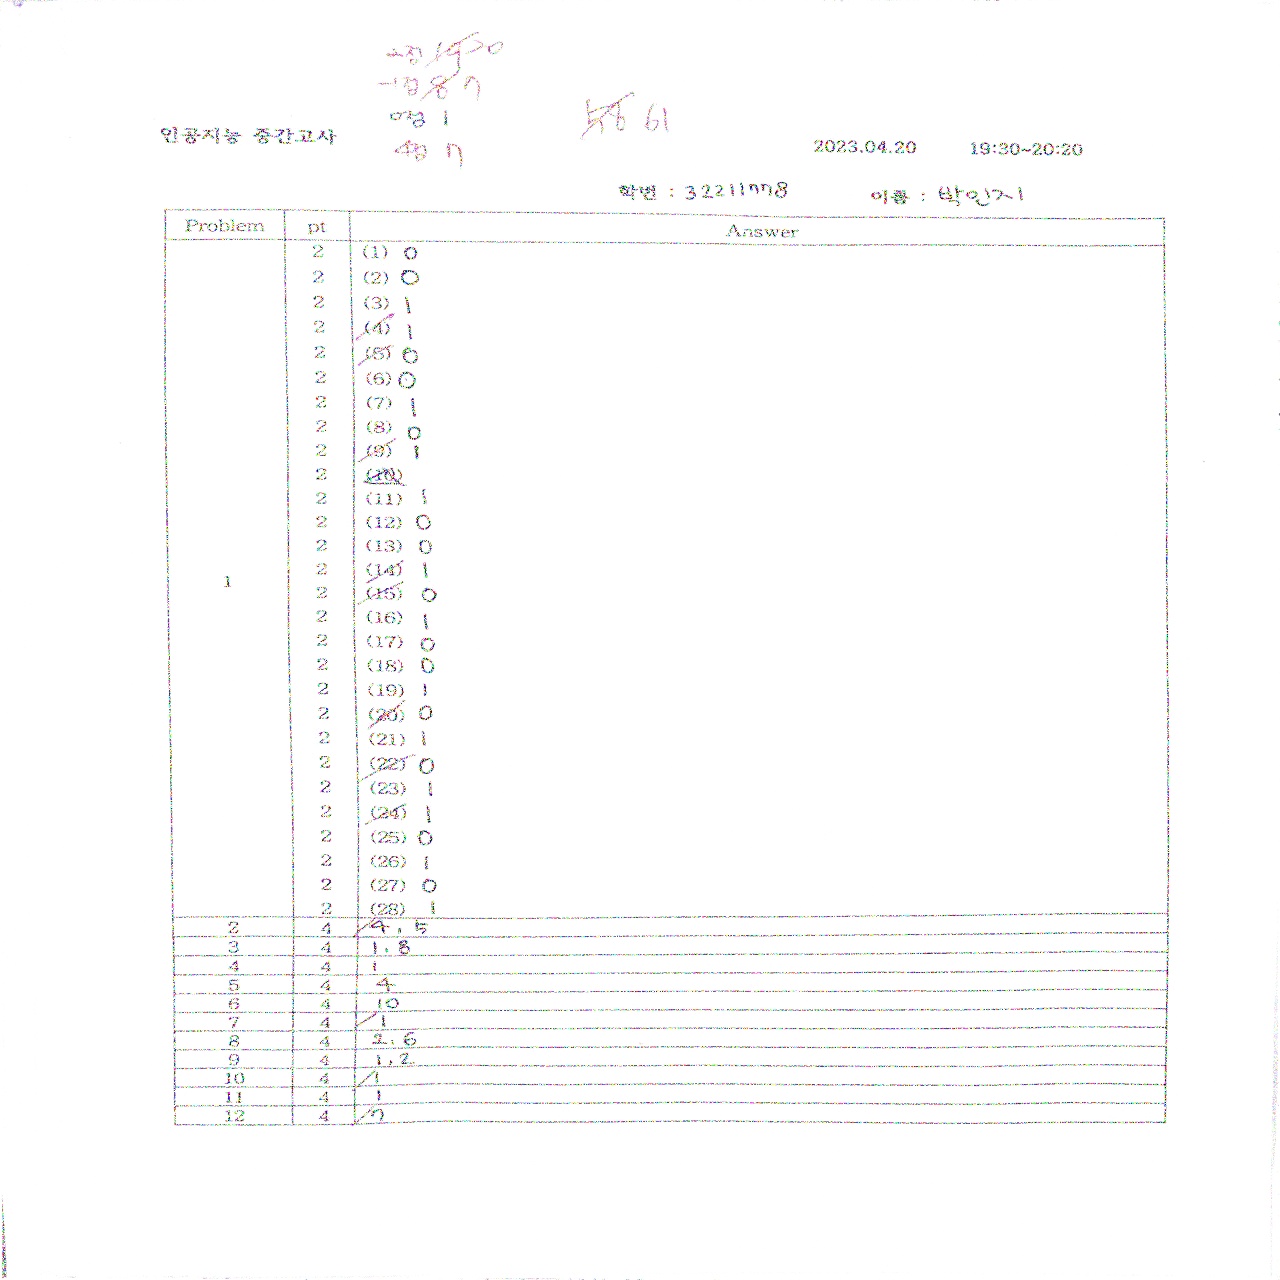 20
7
1
61
7
인공지능 중간고사
2023.04.20 19:30~20:20
학번 : 32211778 이름 : 박인지
Problem pt Answer
2 (1) 0
2 (2) 0
2 (3) 1
2 (4) 1
2 (5) 0
2 (6) 0
2 (7) 1
2 (8) 0
2 (9) 1
2 (10)
2 (11) 1
2 (12) 0
2 (13) 0
2 (14) 1
1
2 (15) 0
2 (16) 1
2 (17) 0
2 (18) 0
2 (19) 1
2 (20) 0
2 (21) 1
2 (22) 0
2 (23) 1
2 (24) 1
2 (25) 0
2 (26) 1
2 (27) 0
2 (28) 1
2 4 4.5
3 4 1.8
4 4 1
5 4 4
6 4 10
7 4 1
8 4 2.6
9 4 1.2
10 4 1
11 4 1
12 4 7